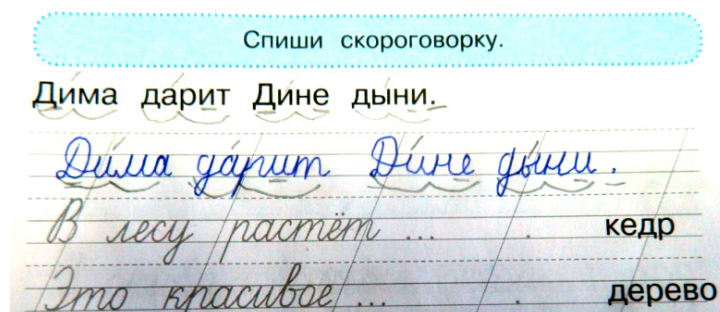 Спиши скороговорку.
Дима дарит Дине дыни.
Дима дарит Дине дыни.
В лесу растёт ... . кедр
Это красивое ... . дерево